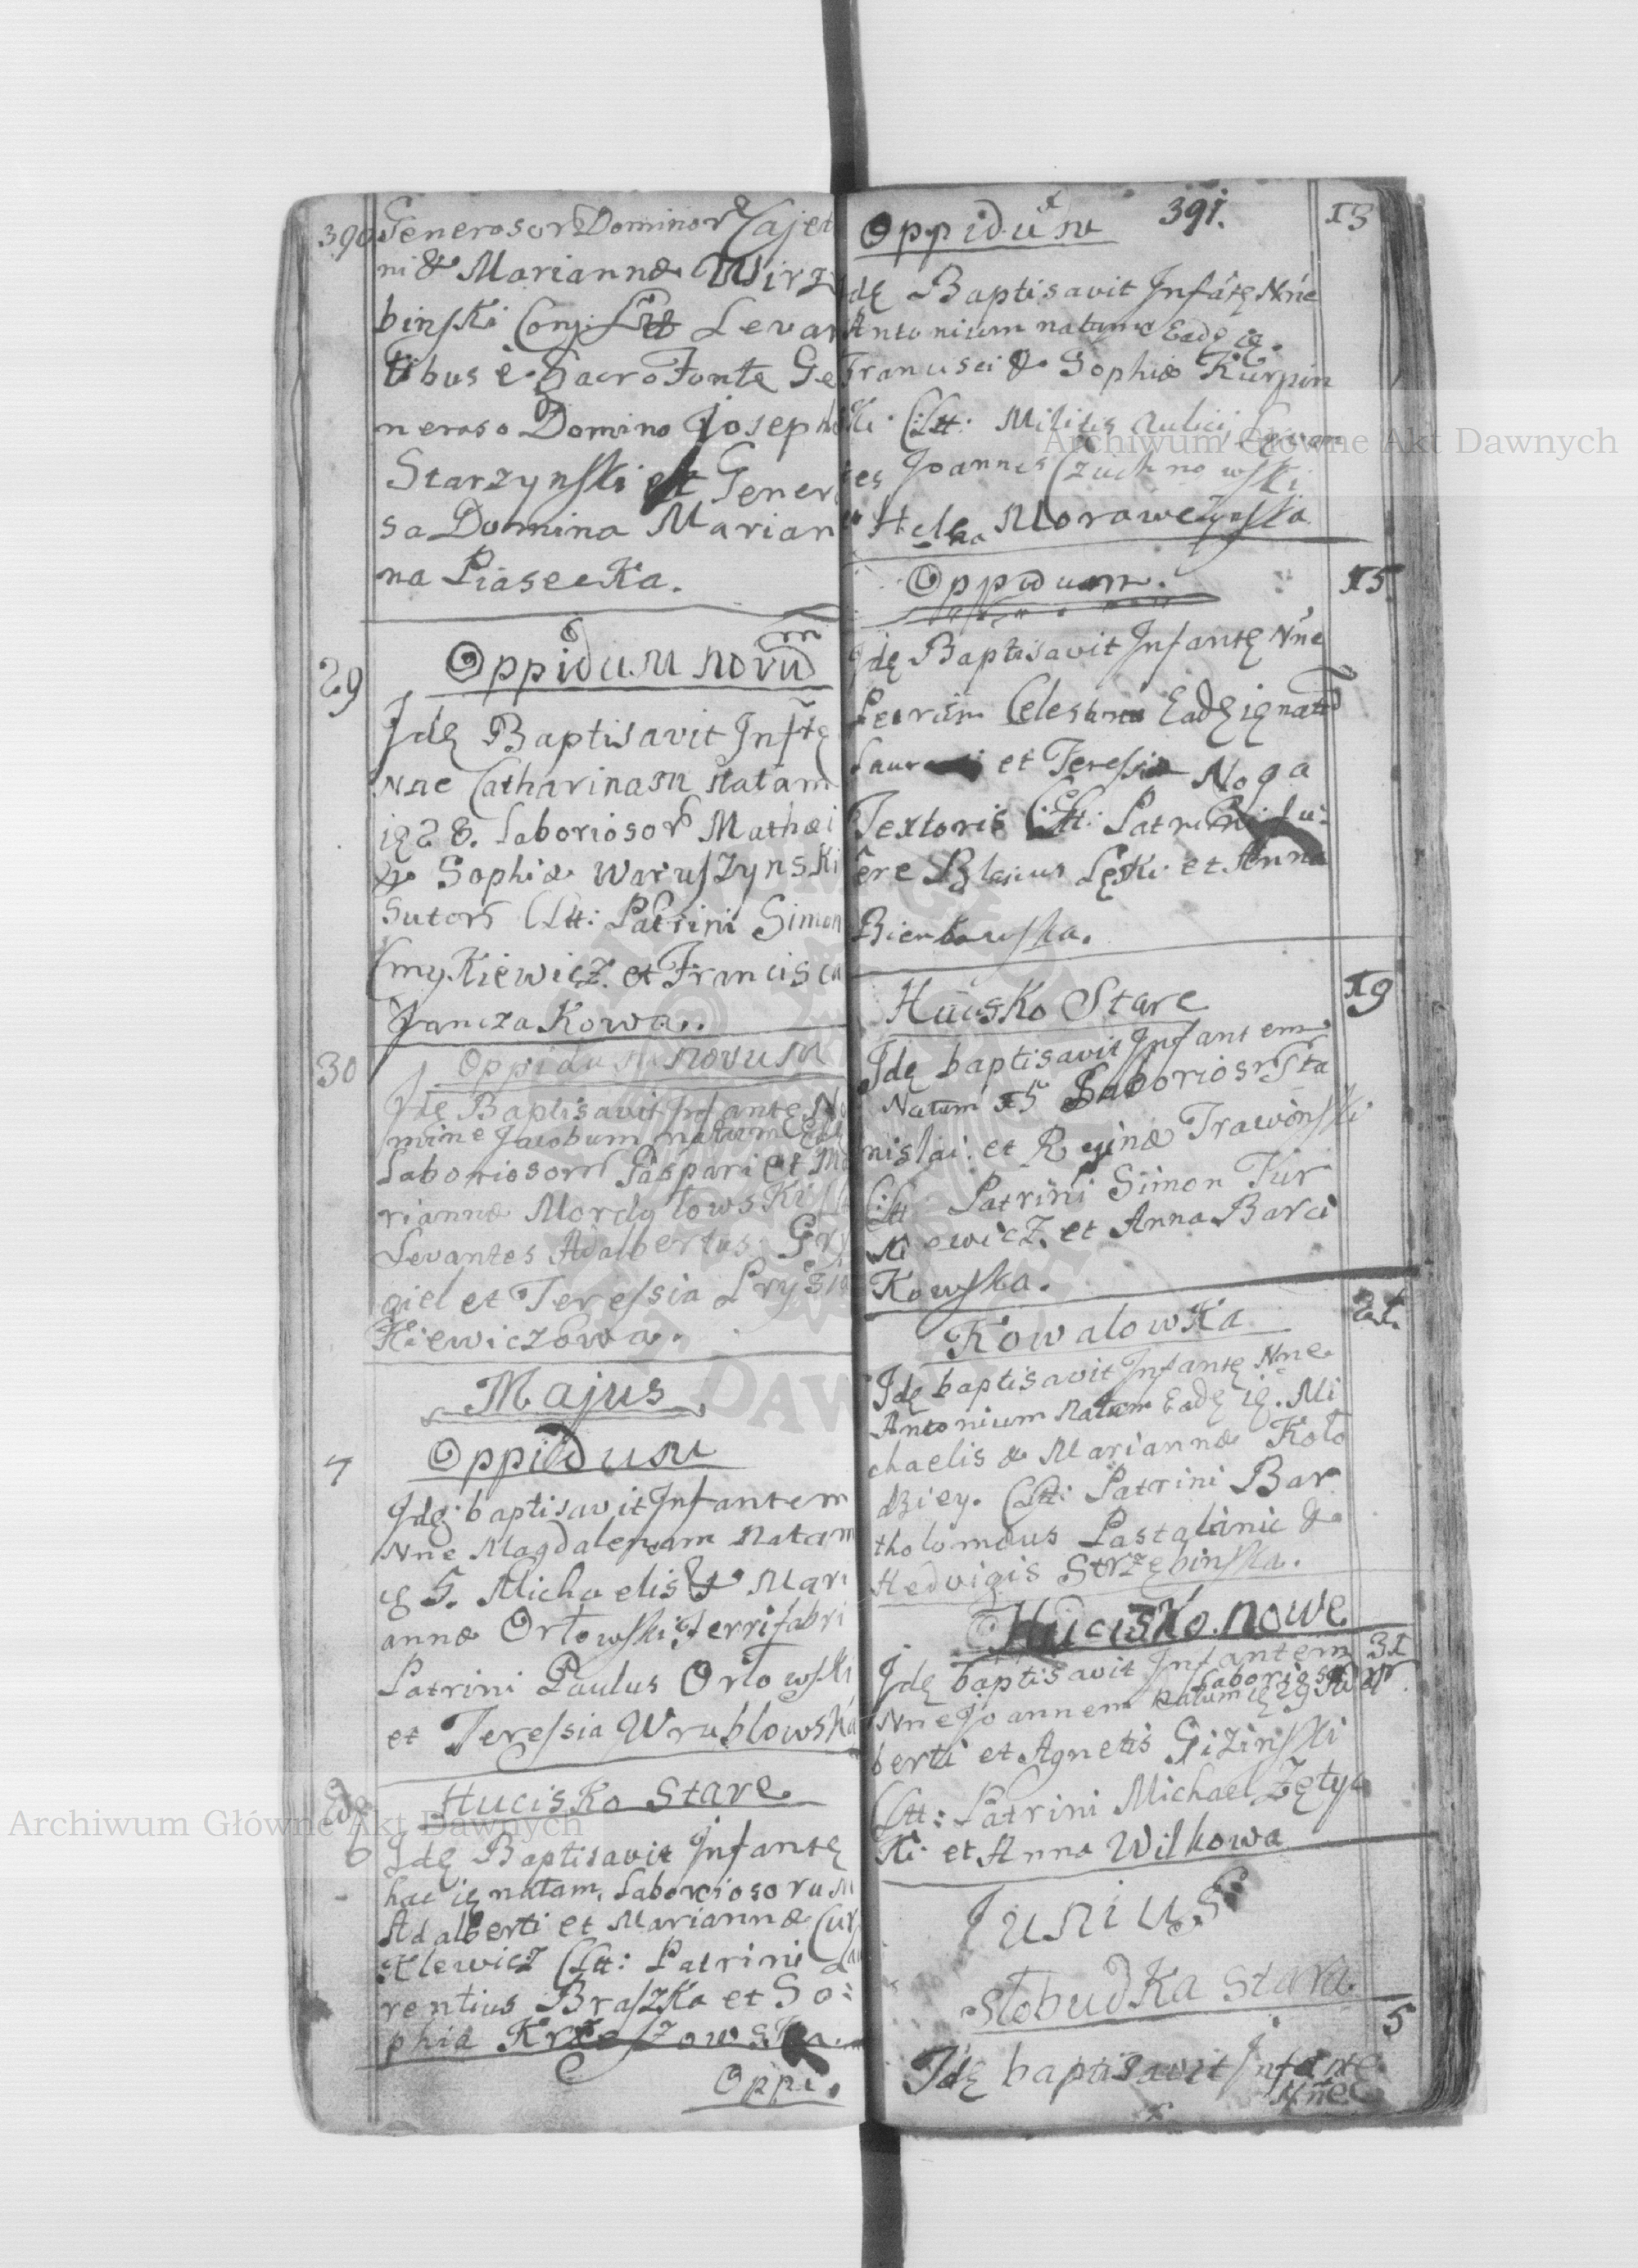 390 Generosor Dominor Cajet
ni & Mariannæ Wirz
binski Conj: Ltt Levan
tibus è Sacro Fonte Ge
neroso Domino Joseph
Starzynski et Genero
sa Domina Marian
na Piasecka.
29 Oppidum novum
Jdę Baptisavit Inftę
Nne Catharinam natam
ię 28. Laboriosor Mathæi
& Sophiæ Waruszynski
Sutors CLtt: Patrini Simon
Cmykiewicz et Francisca
Janczakowa.
30 Oppidum novum
Jdę Baptisavit Infantę No
mine Jacobum natum Eadę
Laboriosorr Gaspari et Ma
riannæ Mordytowski
Levantes Adalbertus Gry
giel et Teressia Prysia
kiewiczowa.
Majus
Oppidum
7 Jdę baptisavit Infantem
Nne Magdalenam natam
ię 5. Michaelis & Mari
annæ Ortowski Ferrifabri
Patrini Paulus Ortowski
et Teressia Wrublowska
Hucisko Stare
Jdę Baptisavit Infantę
hac ię natam, Laboriosorum
Adalberti et Mariannæ Cur
klewicz CLtt: Patrini Lau
rentius Braszka et So:
phia
Oppi.
Oppidum 391. 13
Jdę Baptisavit Infãtę Nne
Antonium natum Eadę ię.
Francisci & Sophiæ Kurpin
ski CLtt: Militis Aulici, Levan
tes Joannes Czuchnowski
et Helena Morawczynska
Oppidum. 15
Jdę Baptisavit Infantę Nne
Petrum Celestinu Eadę ię natu
et Teressiæ Noga
Textoris CLtt: Patrini fu:
ère Blasius Lęski et Anna
Bienkowska.
Hucisko Stare 19
Jdę baptisavit Infantem
Natum 15 Laboriosr Sta
nislai et Reginæ Trawinski
CLtt Patrini Simon Tur
kiewicz et Anna Barci
kowska.
Kowalowka 21.
Jdę baptisavit Infantę Nne
Antonium natum Eadę ię. Mi
chaelis & Mariannæ Koło
dziey. CLtt: Patrini Bar
tholomæus Pastalinic &
Hedvigis Strzębinska.
Hucisko nowe
Jdę baptisavit Infantem 31
Nne Joannem natum ię 29 Laborios Adal
berti et Agnetis Gizinski
CLtt: Patrini Michael Zętyc
ki et Anna Wilkowa
Junius
Słobudka Stara
5
Jdę baptisavit Infantę
Nne
Archiwum Główne Akt Dawnych
Archiwum Główne Akt Dawnych